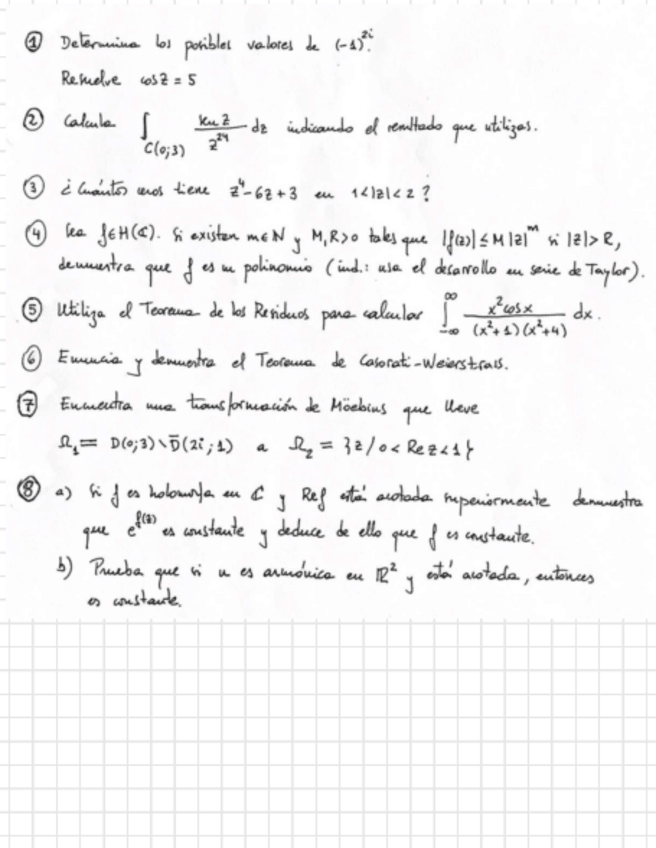 ① Determina los posibles valores de (-1)^{2i}.
Resuelve cos z = 5
② Calcula ∫_{C(0;3)} \frac{sen z}{z^{24}} dz indicando el resultado que utilizas.
③ ¿Cuántos ceros tiene z⁴-6z+3 en 1<|z|<2?
④ Sea f∈H(ℂ). Si existen m∈ℕ y M,R>0 tales que |f(z)| ≤ M|z|^m si |z|>R,
demuestra que f es un polinomio (ind.: usa el desarrollo en serie de Taylor).
⑤ Utiliza el Teorema de los Residuos para calcular ∫_{-∞}^{∞} \frac{x² cos x}{(x²+1)(x²+4)} dx.
⑥ Enuncia y demuestra el Teorema de Casorati-Weierstrass.
⑦ Encuentra una transformación de Möebius que lleve
Ω₁ = D(0;3)\D̄(2i;1) a Ω₂ = {z / 0 < Re z < 1}
⑧ a) Si f es holomorfa en ℂ y Re f está acotada superiormente demuestra
que e^{f(z)} es constante y deduce de ello que f es constante.
b) Prueba que si u es armónica en ℝ² y está acotada, entonces
es constante.